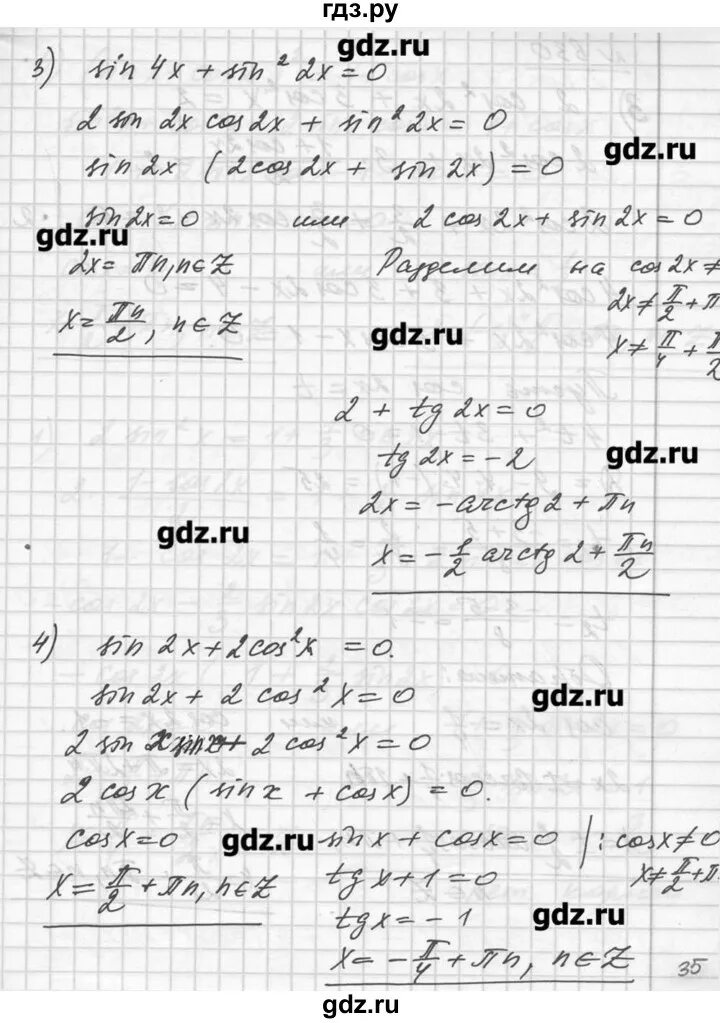 гдз.ру
gdz.ru
3) sin 4x + sin² 2x = 0
2 sin 2x cos 2x + sin² 2x = 0
gdz.ru
sin 2x (2cos 2x + sin 2x) = 0
sin 2x = 0 или 2 cos 2x + sin 2x = 0
gdz.ru
2x = πn, n∈Z Разделим на cos 2x ≠
2x ≠ π/2 + π
x = πn/2, n∈Z
gdz.ru
x ≠ π/4 + π/2
2 + tg 2x = 0
tg 2x = -2
gdz.ru
2x = -arctg 2 + πn
gdz.ru
x = -1/2 arctg 2 + πn/2
4) sin 2x + 2cos² x = 0.
sin 2x + 2 cos² x = 0
gdz.ru
2 sin + 2 cos² x = 0
2 cos x (sin x + cos x) = 0.
cos x = 0
gdz.ru
sin x + cos x = 0 | : cos x ≠ 0
x = π/2 + πn, n∈Z
tg x + 1 = 0
x ≠ π/2 + π
tg x = -1
gdz.ru
x = -π/4 + πn, n∈Z
35
gdz.ru